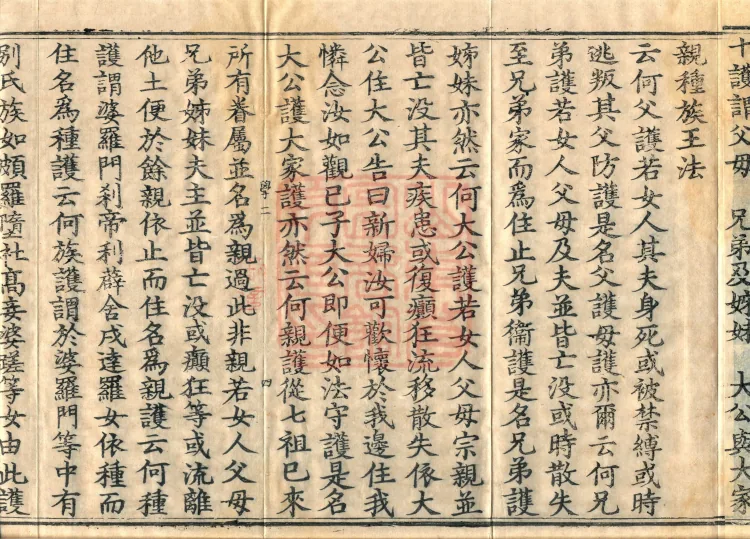 十護謂父母 兄弟及姊妹 大公與大家
親種族王法
云何父護若女人其夫身死或被禁縛或時
逃叛其父防護是名父護母護亦爾云何兄
弟護若女人父母及夫並皆亡没或時散失
至兄弟家而為住止兄弟衞護是名兄弟護
姊妹亦然云何大公護若女人父母宗親並
皆亡没其夫疾患或復癲狂流移散失依大
公住大公告曰新婦汝可歡懷於我邊住我
憐念汝如觀已子大公即便如法守護是名
大公護大家護亦然云何親護從七祖已來
學二 四
所有眷屬並名為親過此非親若女人父母
兄弟姊妹夫主並皆亡没或癲狂等或流離
他土便於餘親依止而住名為親護云何種
護謂婆羅門刹帝利薜舍戍達羅女依種而
住名為種護云何族護謂於婆羅門等中有
別氏族如頗羅墮社高妾婆蹉等女由此護